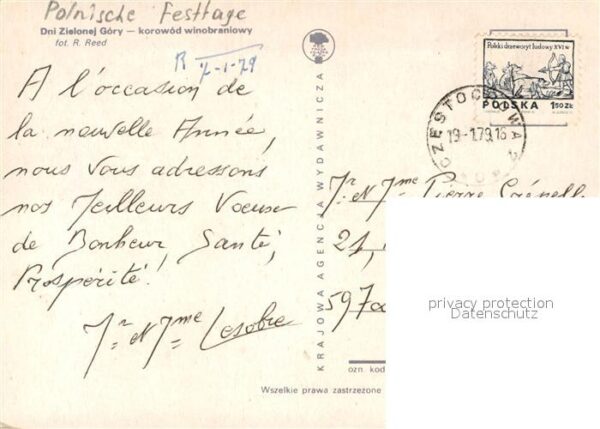 Polnische Festtage
Dni Zielonej Góry — korowód winobraniowy
fot. R. Reed
R 7-1-79
A l'occasion de
la nouvelle Année,
nous Vous adressons
nos Meilleurs Voeux
de Bonheur, Santé,
Prospérité!
Mr et Mme Lesobre
KRAJOWA AGENCJA WYDAWNICZA
Polski drzeworyt ludowy XVI w
POLSKA 1,50 ZŁ
CZĘSTOCHOWA
19-1.79.16
Mr et Mme Pierre
21,
597
privacy protection
Datenschutz
ozn. kod
Wszelkie prawa zastrzeżone